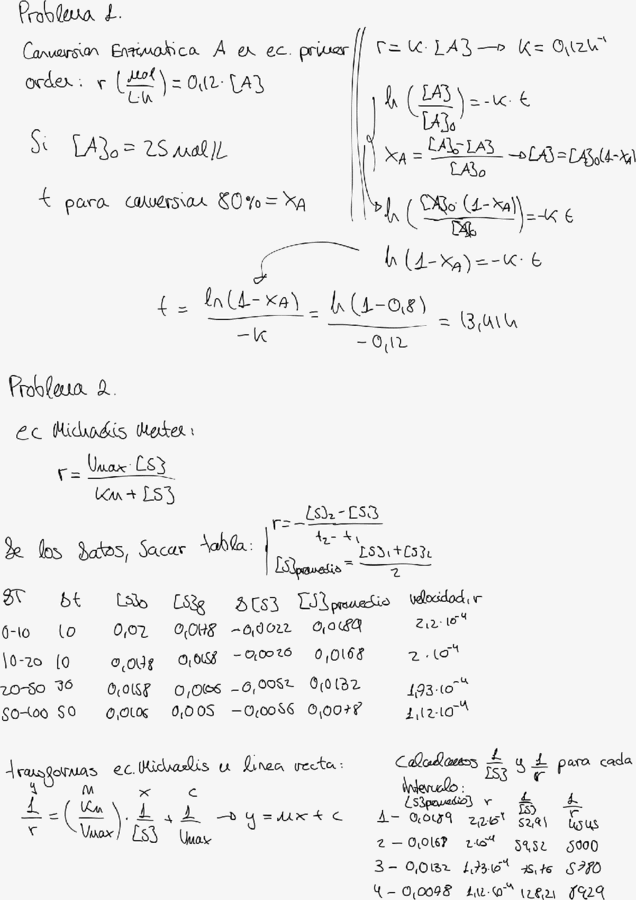 Problema 1.
Conversion Enzimatica A en ec. primer
orden: r (mol/L·h) = 0,12·[A]
Si [A]₀ = 25 mol/L
t para conversion 80% = XA
r = K·[A] → K = 0,12h⁻¹
ln([A]/[A]₀) = -K·t
XA = ([A]₀-[A])/[A]₀ → [A]=[A]₀(1-XA)
ln([A]₀·(1-XA)/[A]₀) = -K t
ln(1-XA) = -K·t
t = ln(1-XA)/-K = ln(1-0,8)/-0,12 = 13,41h
Problema 2.
ec Michaelis Menten:
r = Vmax·[S]/(Km + [S])
De los datos, sacar tabla:
r = - ([S]₂-[S]1)/(t₂-t₁)
[S]promedio = ([S]₁+[S]₂)/2
δT δt [S]₀ [S]f δ[S] [S]promedio velocidad, r
0-10 10 0,02 0,0178 -0,0022 0,0189 2,2·10⁻⁴
10-20 10 0,0178 0,0158 -0,0020 0,0168 2·10⁻⁴
20-50 30 0,0158 0,0106 -0,0052 0,0132 1,73·10⁻⁴
50-100 50 0,0106 0,005 -0,0056 0,0078 1,12·10⁻⁴
transformas ec. Michaelis en linea recta:
y M x c
1/r = (Km/Vmax)·1/[S] + 1/Vmax → y = mx + c
Calculamos 1/[S] y 1/r para cada
intervalo:
[S]promedio r 1/[S] 1/r
1- 0,0189 2,2·10⁻⁴ 52,91 4545
2- 0,0168 2·10⁻⁴ 59,52 5000
3- 0,0132 1,73·10⁻⁴ 75,76 5780
4- 0,0078 1,12·10⁻⁴ 128,21 8929